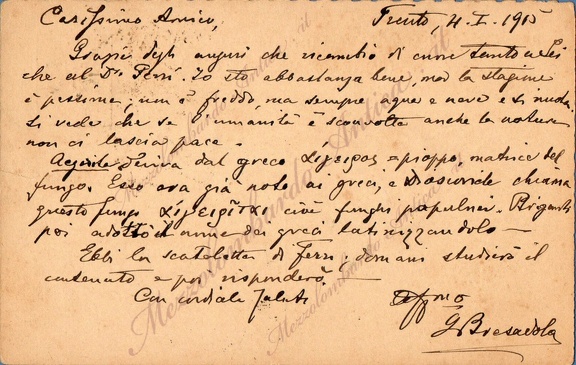 Carissimo Amico, Trento, 4. I. 1915
Grazie degli auguri che ricambio di cuore tanto a Lei
che al Dr Ferri. Io sto abbastanza bene, ma la stagione
è pessima; non è freddo, ma sempre acqua e neve e si
si vede che se l'umanità è sconvolta anche la natura
non ci lascia pace.
Aegerita deriva dal greco = pioppo, matrice del
fungo. Esso era già noto ai greci, e Dioscoride chiama
questo fungo cioè funghi populnei. Briganti
poi adottò il nome dei greci latinizzandolo —
Ebbi la scatoletta di Ferri; domani studierò il
contenuto e poi risponderò.
Con cordiali saluti affmo
G Bresadola
Mezzolombardo
Mezzolombardo